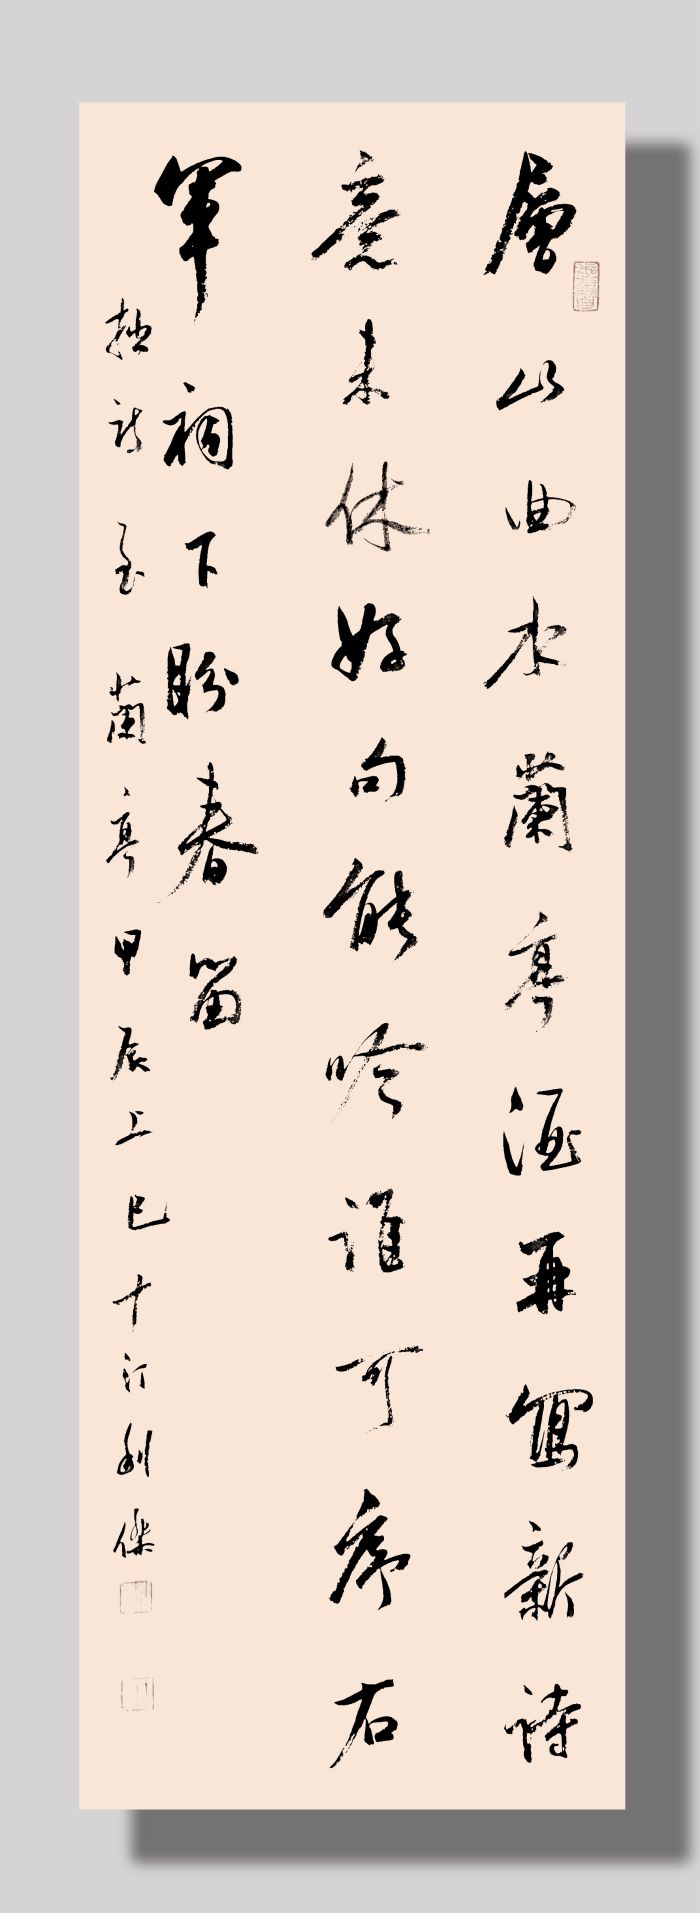 層山曲水蘭亭酒再寫新詩
意未休好句能吟誰可序右
軍祠下盼春留
拙詩至蘭亭甲辰上巳十汀利傑